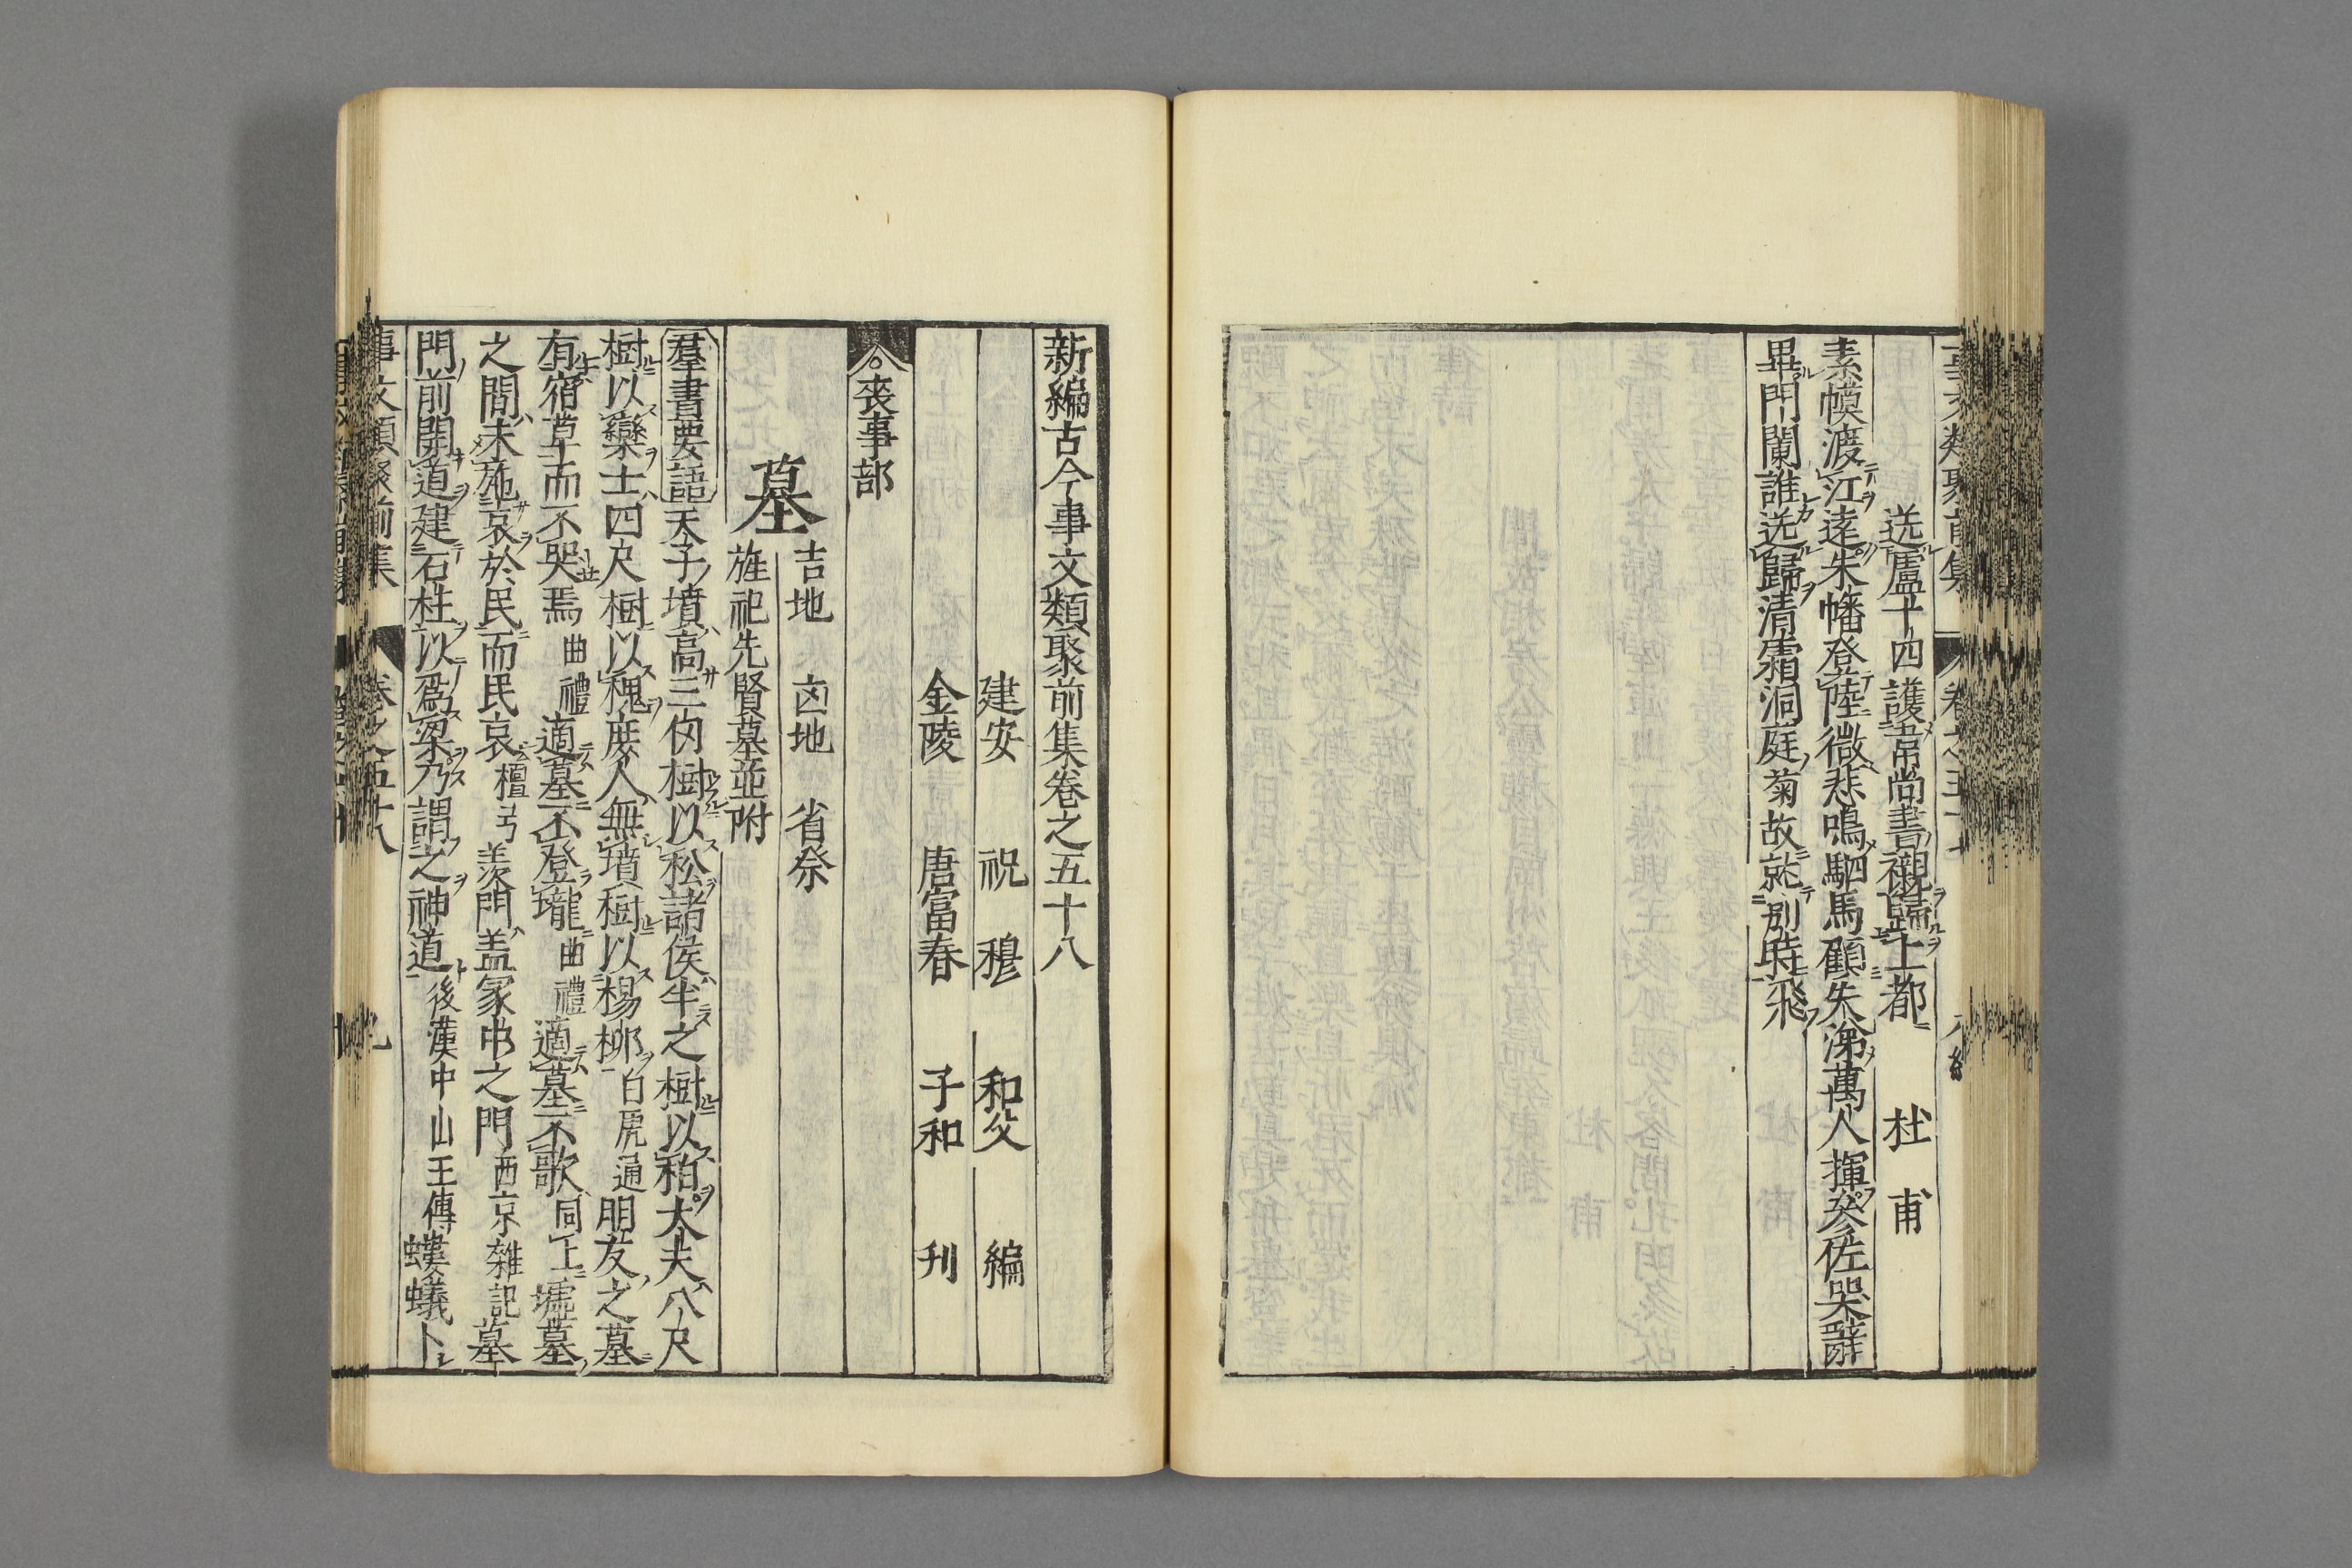 送盧十四護喪尚書襯歸上都　杜甫
素幙渡江遠朱幡登陸微悲鳴駟馬顧失涕萬人揮叅佐哭辭
畢門闌誰送歸清霜洞庭菊故就別時飛
新編古今事文類聚前集卷之五十八
建安　祝　穆　和父　編
金陵　唐富春　子和　刊
喪事部
墓
吉地　凶地　省祭
旌祀先賢墓並附
羣書要語天子墳高三仞樹以松諸侯半之樹以栢大夫八尺
樹以欒士四尺樹以槐庶人無墳樹以楊柳白虎通朋友之墓
有宿草而不哭焉曲禮適墓不登壠曲禮適墓不歌同上墟墓
之間未施哀於民而民哀檀弓羨門盖冢中之門西京雜記墓
門前開道建石柱以爲梁乃謂之神道後漢中山王傳螻蟻卜
事文類聚前集　卷之五十八